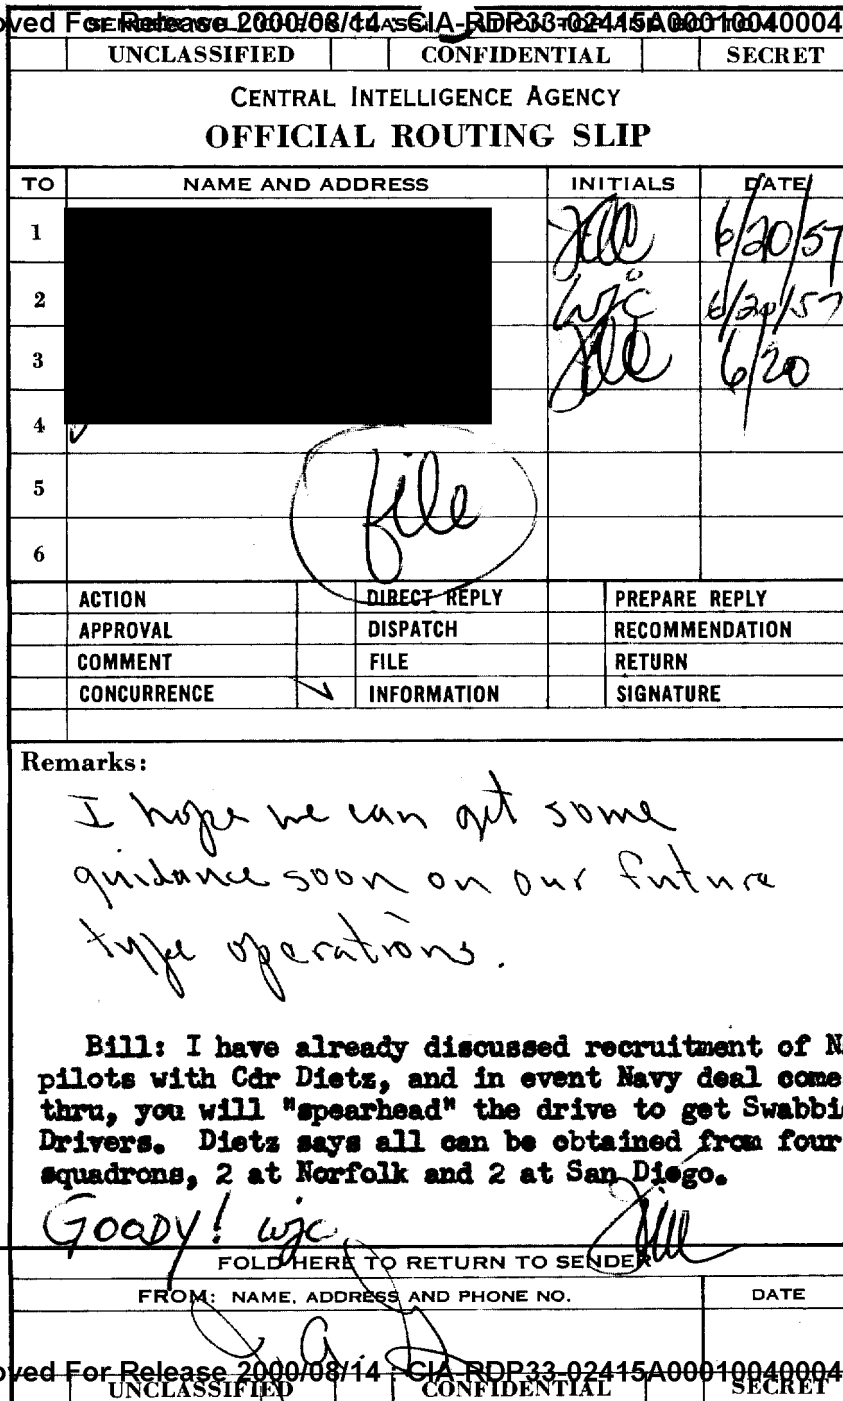 oved For Release 2000/08/14 : CIA-RDP33-02415A00010040004
UNCLASSIFIED CONFIDENTIAL SECRET
CENTRAL INTELLIGENCE AGENCY
OFFICIAL ROUTING SLIP
TO NAME AND ADDRESS INITIALS DATE
1 6/20/57
2 wjc 6/20/57
3 6/20
4
5 file
6
ACTION DIRECT REPLY PREPARE REPLY
APPROVAL DISPATCH RECOMMENDATION
COMMENT FILE RETURN
CONCURRENCE INFORMATION SIGNATURE
Remarks:
I hope we can get some
guidance soon on our future
type operations.
Bill: I have already discussed recruitment of N
pilots with Cdr Dietz, and in event Navy deal come
thru, you will "spearhead" the drive to get Swabbi
Drivers. Dietz says all can be obtained from four
squadrons, 2 at Norfolk and 2 at San Diego.
GOODY! wjc
FOLD HERE TO RETURN TO SENDER
FROM: NAME, ADDRESS AND PHONE NO. DATE
oved For Release 2000/08/14 : CIA-RDP33-02415A00010040004
UNCLASSIFIED CONFIDENTIAL SECRET